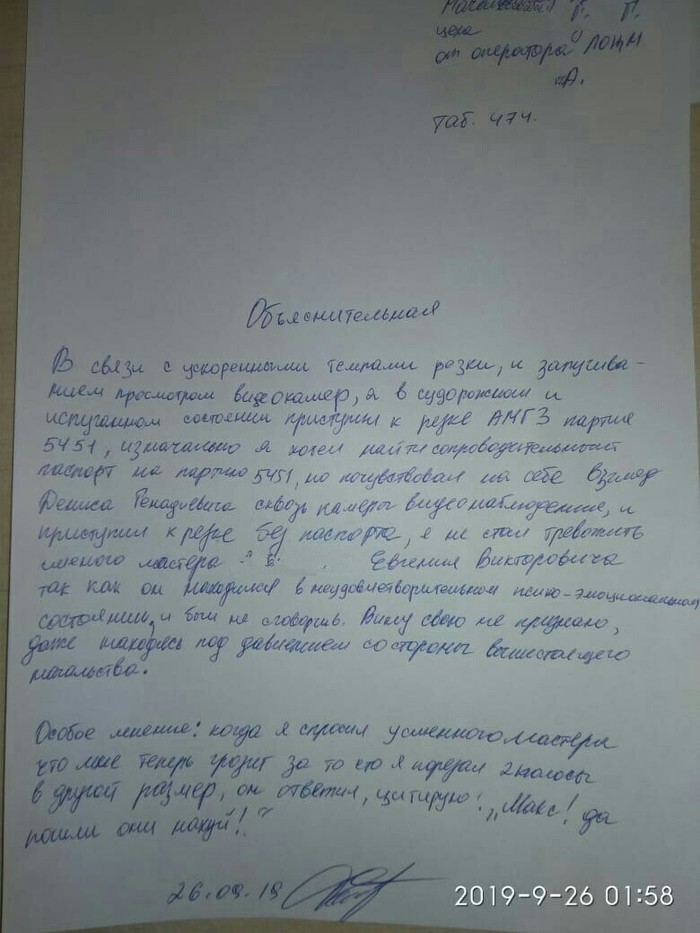 Г. П.
цеха
от оператора ЛОЖМ
А.
таб. 474.
Объяснительная
В связи с ускоренными темпами резки, и запугива-
нием просмотром видеокамер, я в судорожном и
испуганном состоянии приступил к резке АМГ3 партия
5451, изначально я хотел найти сопроводительный
паспорт на партию 5451, но почувствовал на себе взгляд
Дениса Генадиевича сквозь камеры видеонаблюдения, и
приступил к резке без паспорта, я не стал тревожить
сменого мастера Евгения Викторовича
так как он находился в неудовлетворительном психо-эмоциональном
состоянии, и был не сговорчив. Вину свою не признаю,
даже находясь под давлением со стороны вышестоящего
начальства.
Особое мнение: когда я спросил у сменного мастера
что мне теперь грозит за то что я порезал 2 полосы
в другой размер, он ответил, цитирую! „Макс! да
пошли они нахуй!"
26.09.19
2019-9-26 01:58